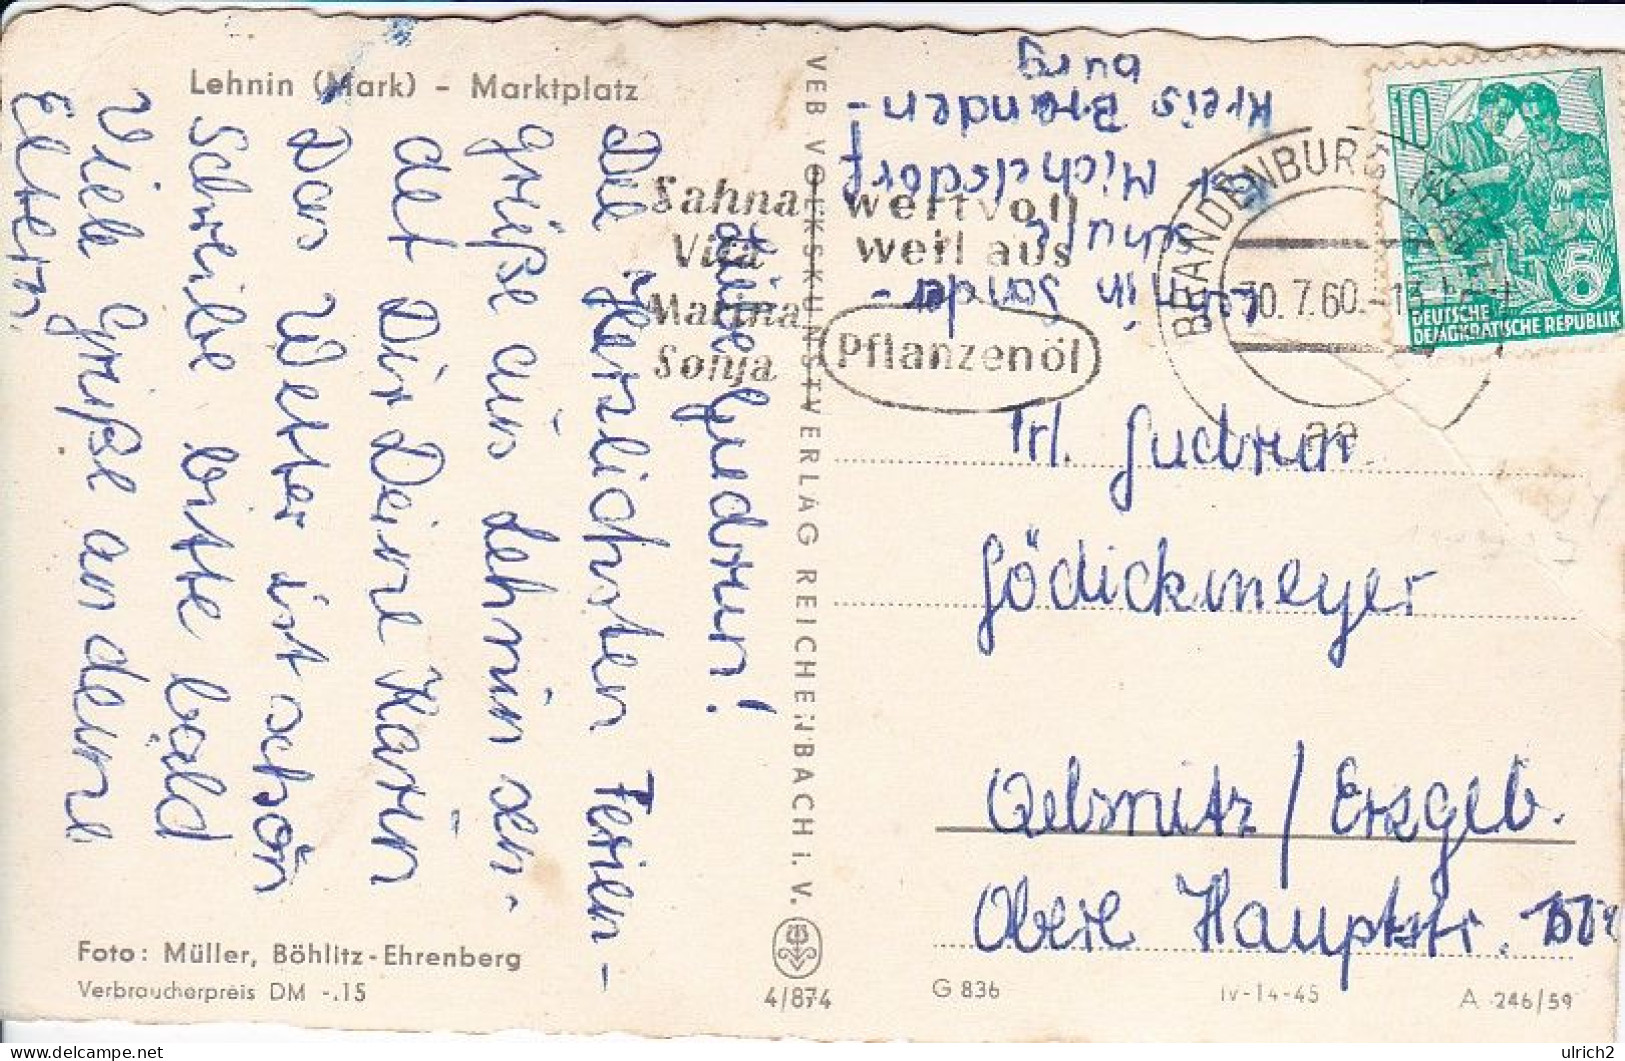 Lehnin (Mark) - Marktplatz
Liebe Gudrun!
Die Herzlichsten Ferien-
grüße aus Lehnin sen-
det Dir Deine Karin
Das Wetter ist schön
Schreibe bitte bald
Viele Grüße an deine
Eltern,
Foto: Müller, Böhlitz-Ehrenberg
Verbraucherpreis DM -.15
VEB VOLKSKUNSTVERLAG REICHENBACH i. V.
4/874
Sahna
Vita
Marina
Sonja
wertvoll
weil aus
Pflanzenöl
in Sonder-
schule
Michelsdorf
Kreis Branden-
burg
BRANDENBURG
30.7.60.-13
aa
10
5
DEUTSCHE
DEMOKRATISCHE REPUBLIK
Frl. Gudrun
Gödickmeyer
Oelsnitz/Erzgeb.
Obere Hauptstr.
G 836
IV-14-45
A 246/59
ulrich2